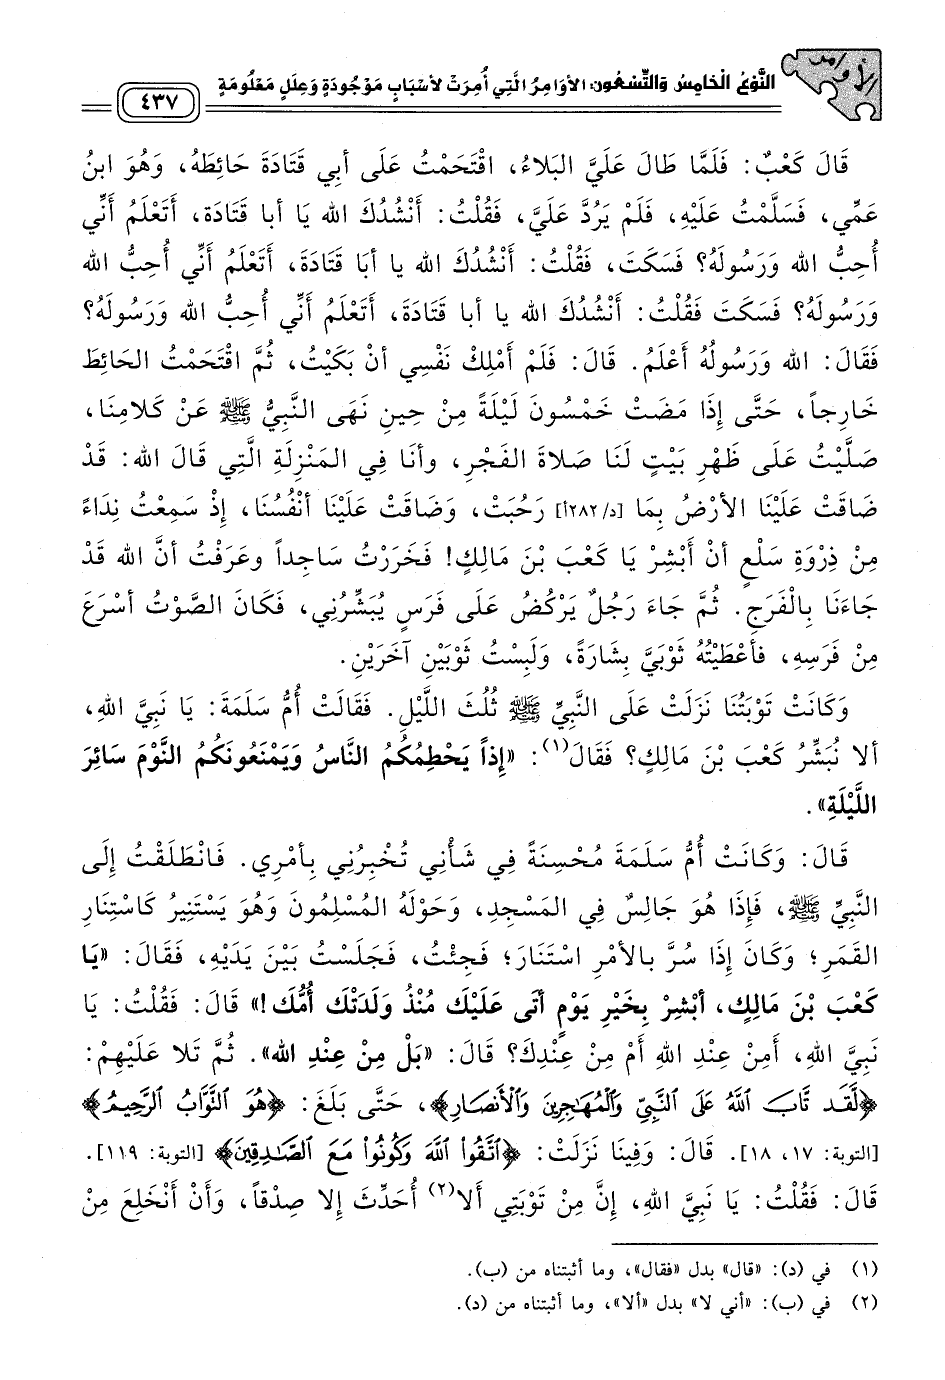 الأوامر
النَّوْعُ الْخَامِسُ وَالتِّسْعُون: الأوَامِرُ الَّتِي أُمِرَتْ لأسْبَابٍ مَوْجُودَةٍ وَعِلَلٍ مَعْلُومَةٍ
٤٣٧
قَالَ كَعْبٌ: فَلَمَّا طَالَ عَلَيَّ البَلاءُ، اقْتَحَمْتُ عَلَى أبِي قَتَادَةَ حَائِطَهُ، وَهُوَ ابنُ
عَمِّي، فَسَلَّمْتُ عَلَيْهِ، فَلَمْ يَرُدَّ عَلَيَّ، فَقُلْتُ: أَنْشُدُكَ الله يَا أبا قَتَادَة، أَتَعْلَمُ أَنِّي
أُحِبُّ الله وَرَسُولَهُ؟ فَسَكَتَ، فَقُلْتُ: أَنْشُدُكَ الله يا أبَا قَتَادَةَ، أَتَعْلَمُ أَنِّي أُحِبُّ الله
وَرَسُولَهُ؟ فَسَكَتَ فَقُلْتُ: أَنْشُدُكَ الله يا أبا قَتَادَةَ، أَتَعْلَمُ أَنِّي أُحِبُّ الله وَرَسُولَهُ؟
فَقَالَ: الله وَرَسُولُهُ أَعْلَمُ. قَالَ: فَلَمْ أَمْلِكْ نَفْسِي أنْ بَكَيْتُ، ثُمَّ اقْتَحَمْتُ الحَائِطَ
خَارِجاً، حَتَّى إِذَا مَضَتْ خَمْسُونَ لَيْلَةً مِنْ حِينِ نَهَى النَّبِيُّ ﷺ عَنْ كَلامِنَا،
صَلَّيْتُ عَلَى ظَهْرِ بَيْتٍ لَنَا صَلاةَ الفَجْرِ، وأنَا فِي المَنْزِلَةِ الَّتِي قَالَ الله: قَدْ
ضَاقَتْ عَلَيْنَا الأرْضُ بِمَا [د/٢٨٢أ] رَحُبَتْ، وَضَاقَتْ عَلَيْنَا أنْفُسُنَا، إِذْ سَمِعْتُ نِدَاءً
مِنْ ذِرْوَةِ سَلْعٍ أنْ أَبْشِرْ يَا كَعْبَ بْنَ مَالِكٍ! فَخَرَرْتُ سَاجِداً وعَرَفْتُ أنَّ الله قَدْ
جَاءَنَا بِالْفَرَجِ. ثُمَّ جَاءَ رَجُلٌ يَرْكُضُ عَلَى فَرَسٍ يُبَشِّرُنِي، فَكَانَ الصَّوْتُ أسْرَعَ
مِنْ فَرَسِهِ، فأعْطَيْتُهُ ثَوْبَيَّ بِشَارَةً، وَلَبِسْتُ ثَوْبَيْنِ آخَرَيْنِ.
وَكَانَتْ تَوْبَتُنَا نَزَلَتْ عَلَى النَّبِيِّ ﷺ ثُلُثَ اللَّيْلِ. فَقَالَتْ أُمُّ سَلَمَةَ: يَا نَبِيَّ اللهِ،
ألا نُبَشِّرُ كَعْبَ بْنَ مَالِكٍ؟ فَقَالَ(١): «إِذاً يَحْطِمُكُمُ النَّاسُ وَيَمْنَعُونَكُمُ النَّوْمَ سائِرَ
اللَّيْلَةِ».
قَالَ: وَكَانَتْ أُمُّ سَلَمَةَ مُحْسِنَةً فِي شَأْنِي تُخْبِرُنِي بِأمْرِي. فَانْطَلَقْتُ إِلَى
النَّبِيِّ ﷺ، فَإِذَا هُوَ جَالِسٌ فِي المَسْجِدِ، وَحَوْلَهُ المُسْلِمُونَ وَهُوَ يَسْتَنِيرُ كَاسْتِنَارِ
القَمَرِ؛ وَكَانَ إِذَا سُرَّ بالأمْرِ اسْتَنَارَ؛ فَجِئْتُ، فَجَلَسْتُ بَيْنَ يَدَيْهِ، فَقَالَ: «يَا
كَعْبَ بْنَ مَالِكٍ، أبْشِرْ بِخَيْرِ يَوْمٍ أَتَى عَلَيْكَ مُنْذُ وَلَدَتْكَ أُمُّكَ!» قَالَ: فَقُلْتُ: يَا
نَبِيَّ اللهِ، أَمِنْ عِنْدِ اللهِ أَمْ مِنْ عِنْدِكَ؟ قَالَ: «بَلْ مِنْ عِنْدِ الله». ثُمَّ تَلا عَلَيْهِمْ:
﴿لَّقَد تَّابَ ٱللَّهُ عَلَى ٱلنَّبِيِّ وَٱلْمُهَٰجِرِينَ وَٱلْأَنصَارِ﴾، حَتَّى بَلَغَ: ﴿هُوَ ٱلتَّوَّابُ ٱلرَّحِيمُ﴾
[التوبة: ١٧، ١٨]. قَالَ: وَفِينَا نَزَلَتْ: ﴿ٱتَّقُوا۟ ٱللَّهَ وَكُونُوا۟ مَعَ ٱلصَّٰدِقِينَ﴾ [التوبة: ١١٩].
قَالَ: فَقُلْتُ: يَا نَبِيَّ اللهِ، إِنَّ مِنْ تَوْبَتِي أَلا(٢) أُحَدِّثَ إِلا صِدْقاً، وَأَنْ أَنْخَلِعَ مِنْ
(١) في (د): «قال» بدل «فقال»، وما أثبتناه من (ب).
(٢) في (ب): «أني لا» بدل «ألا»، وما أثبتناه من (د).